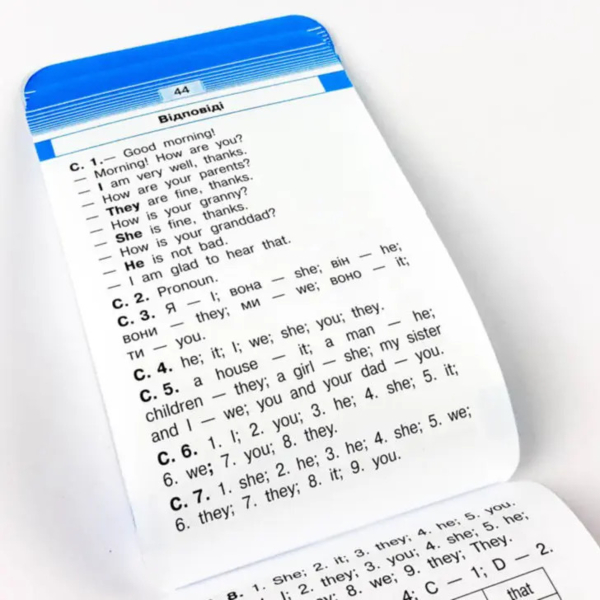 44
Відповіді
С. 1.— Good morning!
— Morning! How are you?
— I am very well, thanks.
— How are your parents?
— They are fine, thanks.
— How is your granny?
— She is fine, thanks.
— How is your granddad?
— He is not bad.
— I am glad to hear that.
С. 2. Pronoun.
С. 3. Я — I; вона — she; він — he;
вони — they; ми — we; воно — it;
ти — you.
С. 4. he; it; I; we; she; you; they.
С. 5. a house — it; a man — he;
children — they; a girl — she; my sister
and I — we; you and your dad — you.
С. 6. 1. I; 2. you; 3. he; 4. she; 5. it;
6. we; 7. you; 8. they.
С. 7. 1. she; 2. he; 3. he; 4. she; 5. we;
6. they; 7. they; 8. it; 9. you.
8. 1. She; 2. it; 3. they; 4. he; 5. you.
I; 2. they; 3. you; 4. she; 5. he;
8. we; 9. they; They.
4; C — 1; D — 2.
that